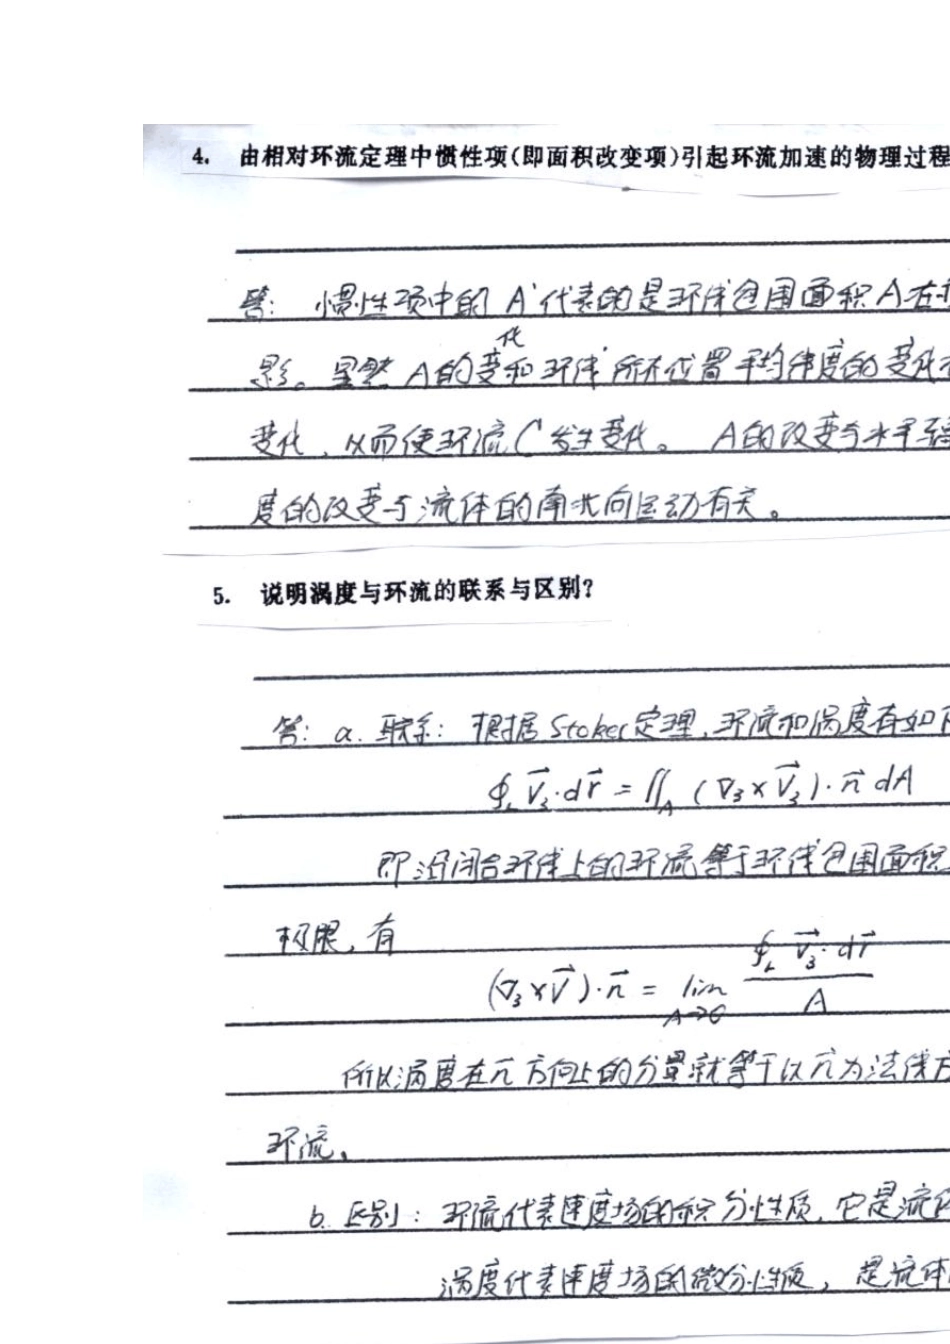 4. 由相对环流定理中惯性项(即面积改变项)引起环流加速的物理过程
答: 惯性项中的 A'代表的是环线包围面积A在
影。显然 A的变化和环线所在位置平均纬度的变化
变化,从而使环流C发生变化。 A的改变与水平
度的改变与流体的南北向运动有关。
5. 说明涡度与环流的联系与区别?
答: a. 联系: 根据 Stokes定理,环流和涡度有如
∮_L V⃗₃·dr⃗ = ∬_A (∇₃×V⃗₃)·n⃗ dA
即沿闭合环线上的环流等于环线包围面积
极限,有
(∇₃×V⃗)·n⃗ = lim_{A→0} ∮_L V⃗₃·dr⃗ / A
所以涡度在n⃗方向上的分量就等于以n⃗为法线方
环流。
b. 区别: 环流代表速度场的积分性质,它是流体
涡度代表速度场的微分性质, 是流体